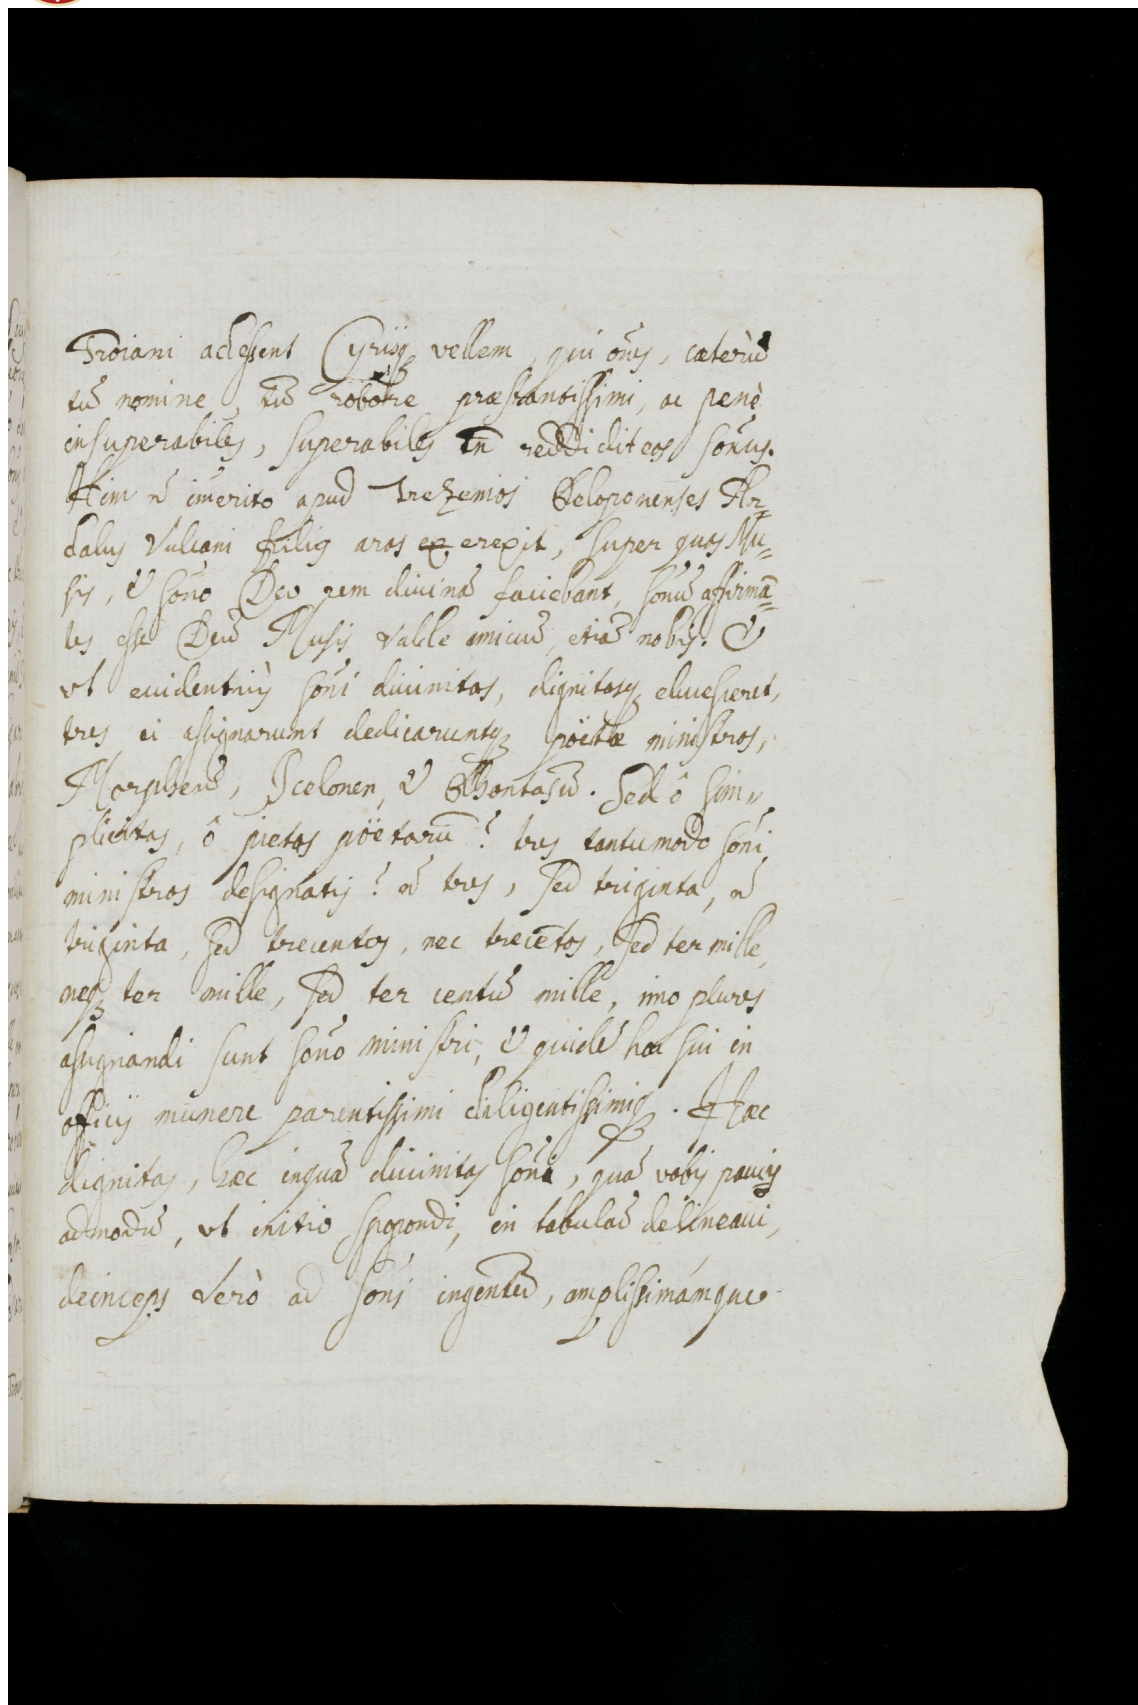 Troiani adessent Cyrusq vellem, qui oēs, cæterũ
tũ nomine, tũ robore præstantissimi, ac penè
insuperabiles, superabiles tñ reddidit eos somũs.
Hinc ñ im̃erito apud Trezenios Peloponenses Ar=
dalus Vulcani filiq aras erexit, super quas Mu=
sis, & som̃o Deo rem divinã faciebant, som̃ũ affirmã=
tes esse Deũ Musis valde amicũ, etiã nobis. &
vt euidentiùs som̃i diuinitas, dignitasq elucesceret,
tres ei assignarunt dedicaruntq poëtæ ministros,
Morpheũ, Icelonen, & Phantasũ. Sed ô sim=
plicitas, ô pietas poëtarũ! tres tantumodo som̃i
ministros designatis! ñ tres, sed triginta, ñ
triginta, sed trecentos, nec trecẽtos, sed ter mille,
neq ter mille, sed ter centũ mille, imo plures
assignandi sunt som̃o ministri, & quidẽ hoc sui in
officij munere parentissimi diligentissimiq. Hæc
dignitas, hæc inquã diuinitas som̃i, quã vobis paucis
admodũ, vt initio spopondi, in tabulã delineaui,
deinceps verò ad som̃i ingentẽ, amplissimámque